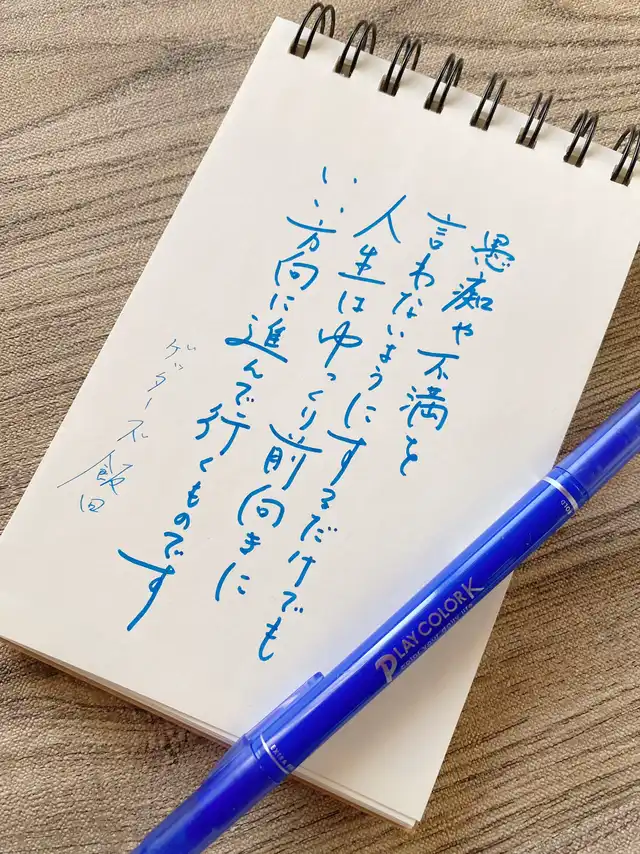 愚痴や不満を
言わないようにするだけでも
人生はゆっくり前向きに
いい方向に進んで行くものです
ゲッターズ飯田
PLAY COLOR K
color your daily life
EXTRA FINE
BOLD